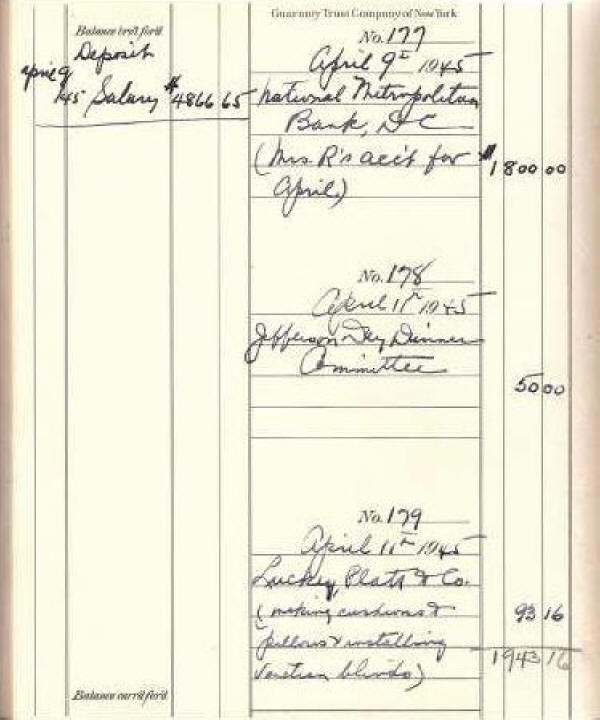 Guaranty Trust Company of New York
Balance bro't for'd
Deposit
April 9
145 Salary $4866 65
No. 177
April 9th 1945
National Metropolitan
Bank, D C
(Mrs. R's acc't for $1800 00
April)
No. 178
April 11th 1945
Jefferson Day Dinner
Committee
50 00
No. 179
April 11th 1945
Luckey, Platt & Co.
(making cushions & 93 16
pillows & installing
Venetian blinds) 1943 16
Balance carr'd for'd